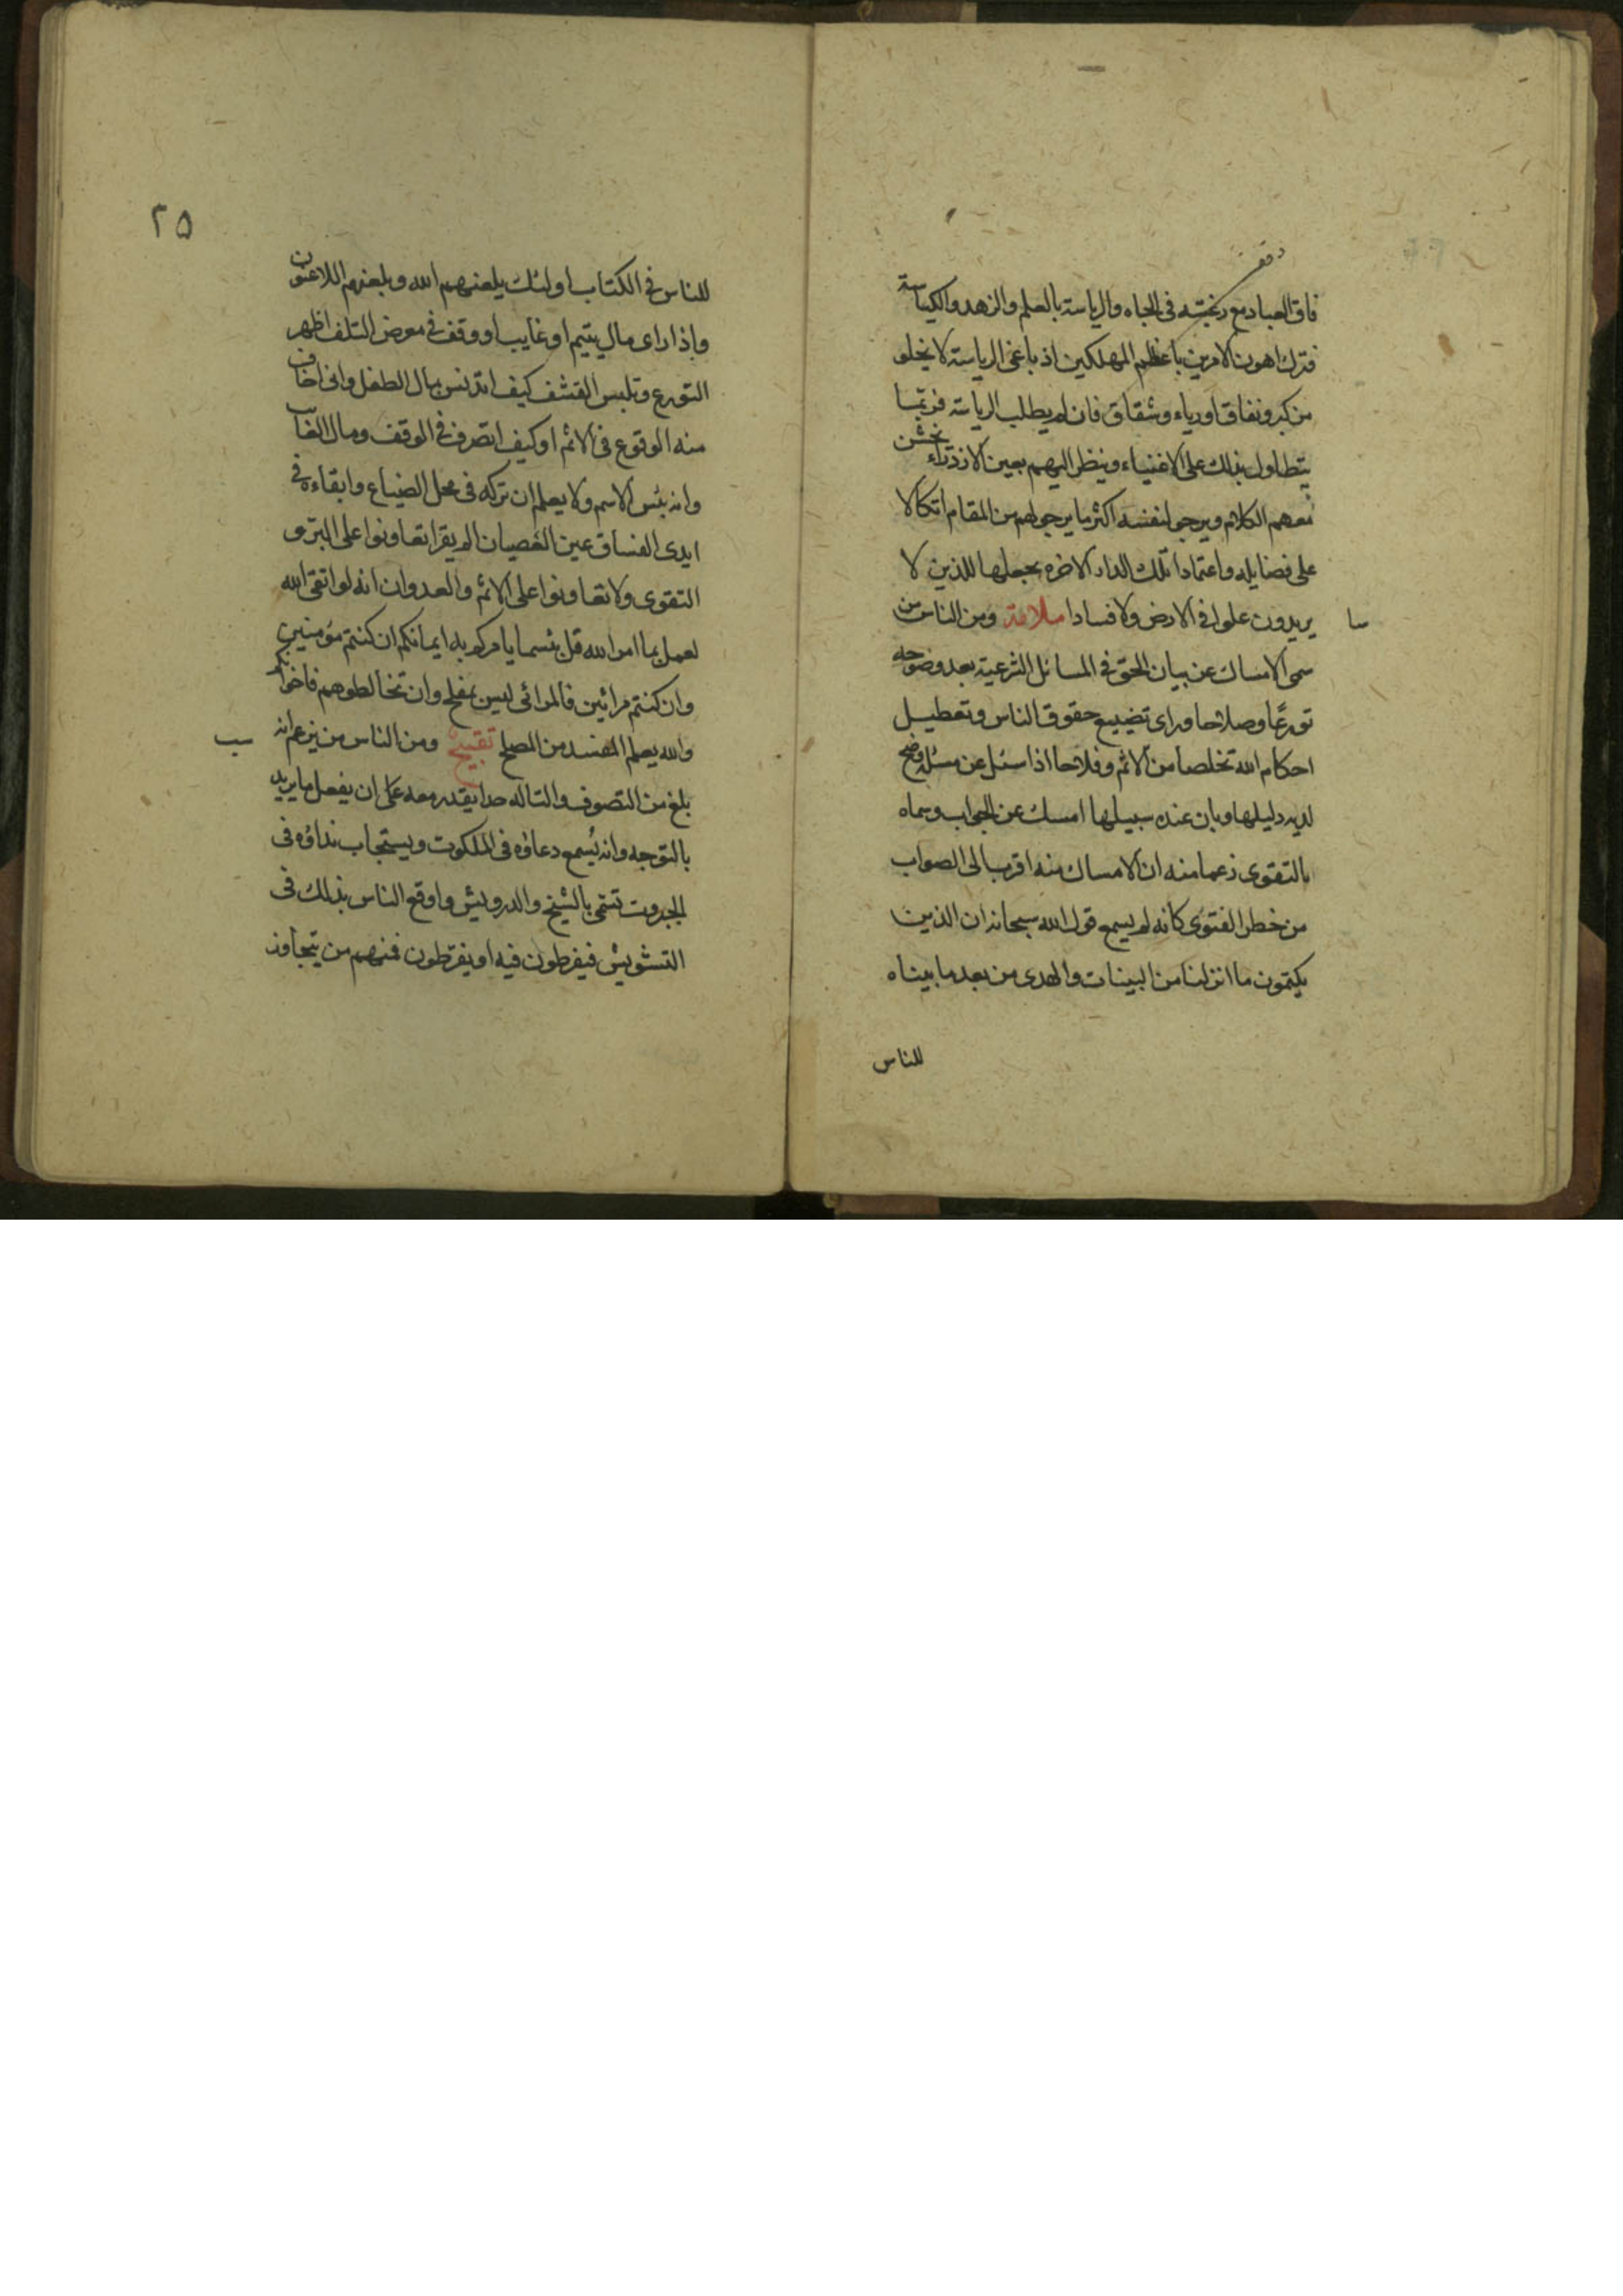 دفع
فاق العباد مع رغبته فى الجاه والرياسة بالعلم والزهد والكياسة
فترك اهون الامرين باعظم المهلكين اذ باغى الرياسة لا يخلو
من كبر ونفاق اورياء وشقاق فان لم يطلب الرياسة فربما
يتطاول بذلك على الاغنياء وينظر اليهم بعين الازدراء يخشن
معهم الكلام ويرجو لنفسه اكثر ما يرجو لهم من المقام اتكالا
على فضايله واعتمادا تلك الدار الاخره نجعلها للذين لا
سا
يريدون علوا فى الارض ولا فسادا ملامة ومن الناس من
سمى الامساك عن بيان الحق فى المسائل الشرعية بعد وضوحه
تورعًا وصلاحا وراى تضييع حقوق الناس وتعطيل
احكام الله تخلصا من الاثم وفلاحا اذا سئل عن مسئلة وضح
لديه دليلها وبان عنده سبيلها امسك عن الجواب وسماه
بالتقوى زعما منه ان الامساك منه اقرب الى الصواب
من خطر الفتوى كانه لم يسمع قول الله سبحانه ان الذين
يكتمون ما انزلنا من البينات والهدى من بعد ما بيناه
للناس
٢۵
للناس فى الكتاب اولئك يلعنهم الله ويلعنهم اللاعنون
واذا راى مال يتيم او غايب او وقف فى معرض التلف اظهر
التورع وتلبس القشف كيف اتدنس بمال الطفل وانى اخاف
منه الوقوع فى الاثم او كيف اتصرف فى الوقف ومال الغائب
وانه بئس الاسم ولا يعلم ان تركه فى محل الضياع وابقاءه فى
ايدى الفساق عين العصيان الم يقرا تعاونوا على البر و
التقوى ولا تعاونوا على الاثم والعدوان انه لو اتقى الله
لعمل بما امر الله قل بئسما يامركم به ايمانكم ان كنتم مؤمنين
وان كنتم مرائين فالمرائى ليس بمفلح وان تخالطوهم فاخوانكم
والله يعلم المفسد من المصلح تقبيح ومن الناس من يزعم انه
سب
بلغ من التصوف والتاله حدا يقدر معه على ان يفعل ما يريد
بالتوجه وانه يُسمع دعاؤه فى الملكوت ويستجاب نداؤه فى
الجبروت تسمى بالشيخ والدرويش واوقع الناس بذلك فى
التشويش فيفرطون فيه او يفرّطون فمنهم من يتجاوز